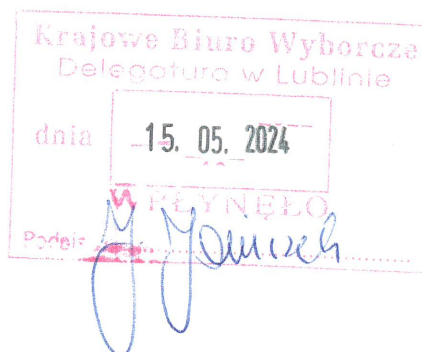 Krajowe Biuro Wyborcze
Delegatura w Lublinie
dnia 15. 05. 2024
WPŁYNĘŁO
Podpis